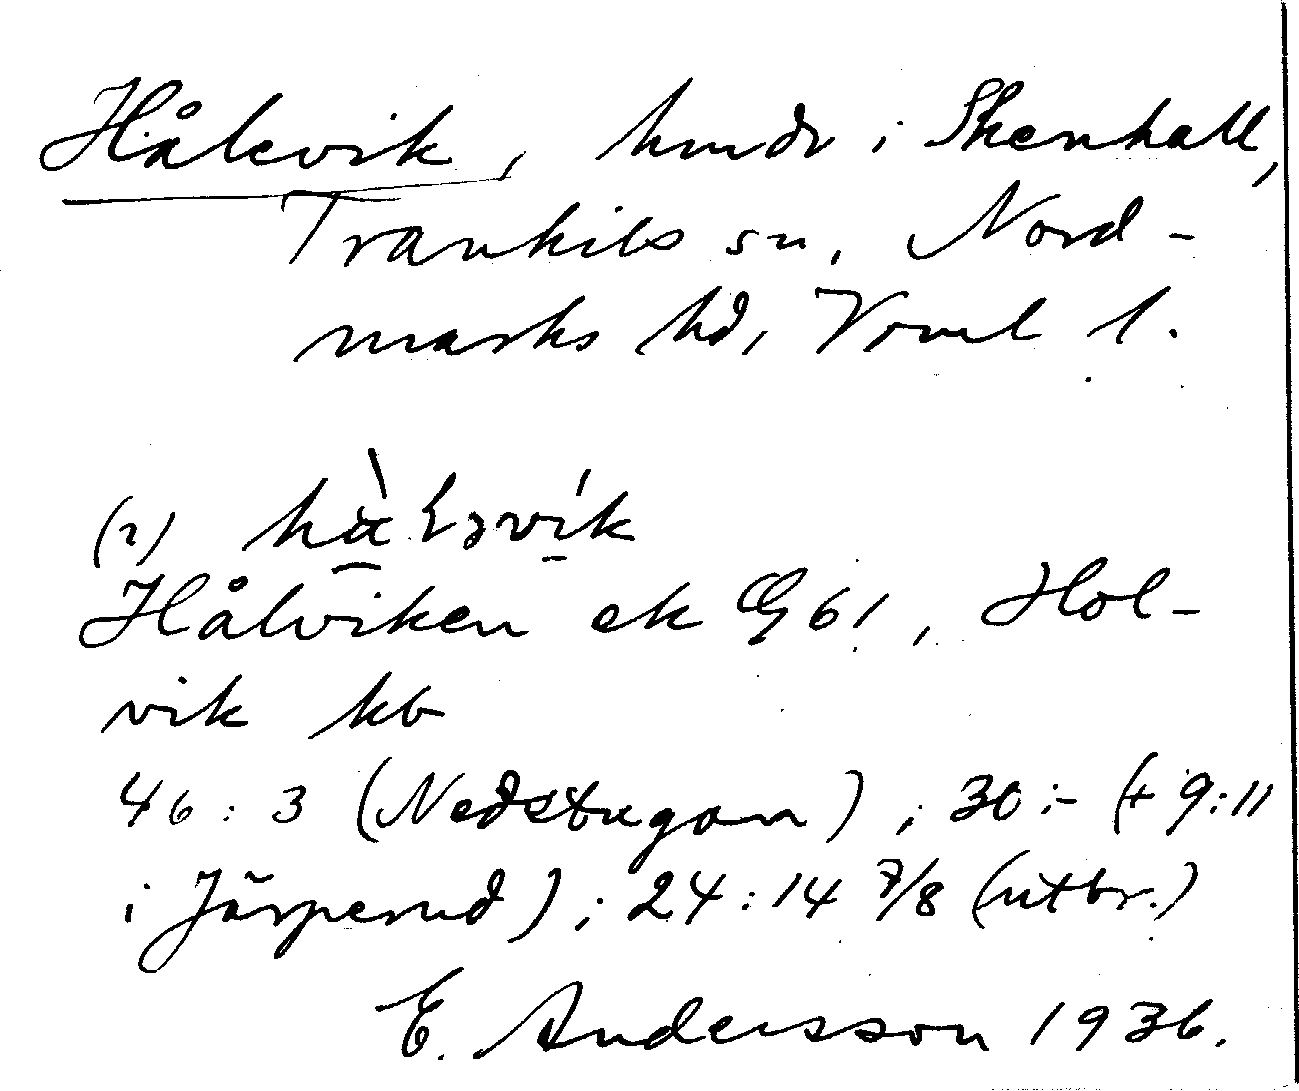 Hålevik, hmdr i Skenhall,
Trankils sn, Nord-
marks hd, Verml l.
(2)
Hålviken ek G 61, Hol-
vik kb
46:3 (Nedstugan); 30:- (+ 9:11
i Järperud); 24:14 7/8 (utbr.)
E. Andersson 1936.